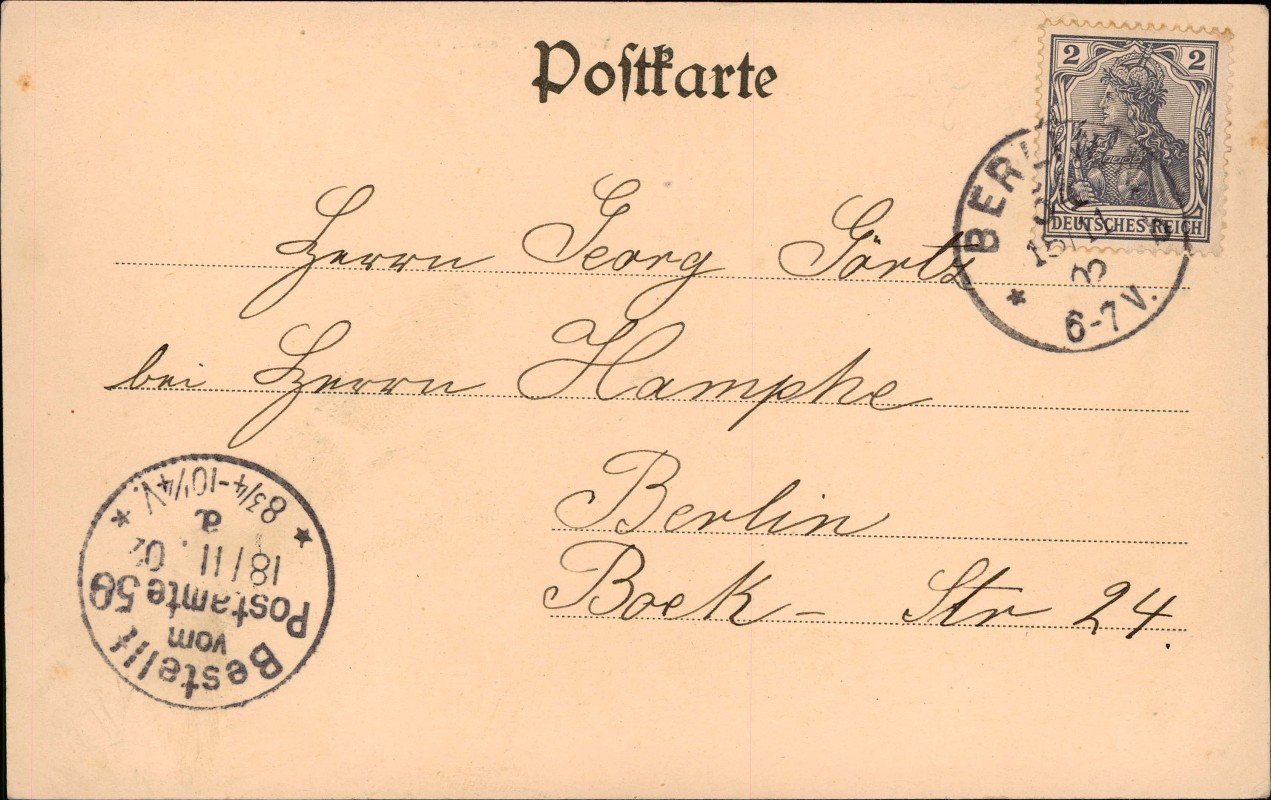 Postkarte
2 2
DEUTSCHES REICH
BERLIN
6-7 V.
Herrn Georg Görtz
bei Herrn Hamphe
Berlin
Bock- Str 24.
Bestellt
vom
Postamte 59
18/11. 02
a
8 3/4-10 1/4 V.